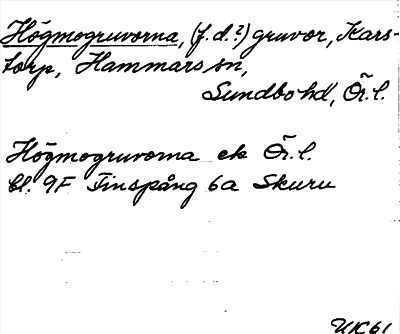 Högmogruvorna, (f.d.?) gruvor, Kars-
torp, Hammars sn,
Sundbo hd, Ör.l.
Högmogruvorna ek Ör.l.
bl. 9F Finspång 6a Skuru
UK61